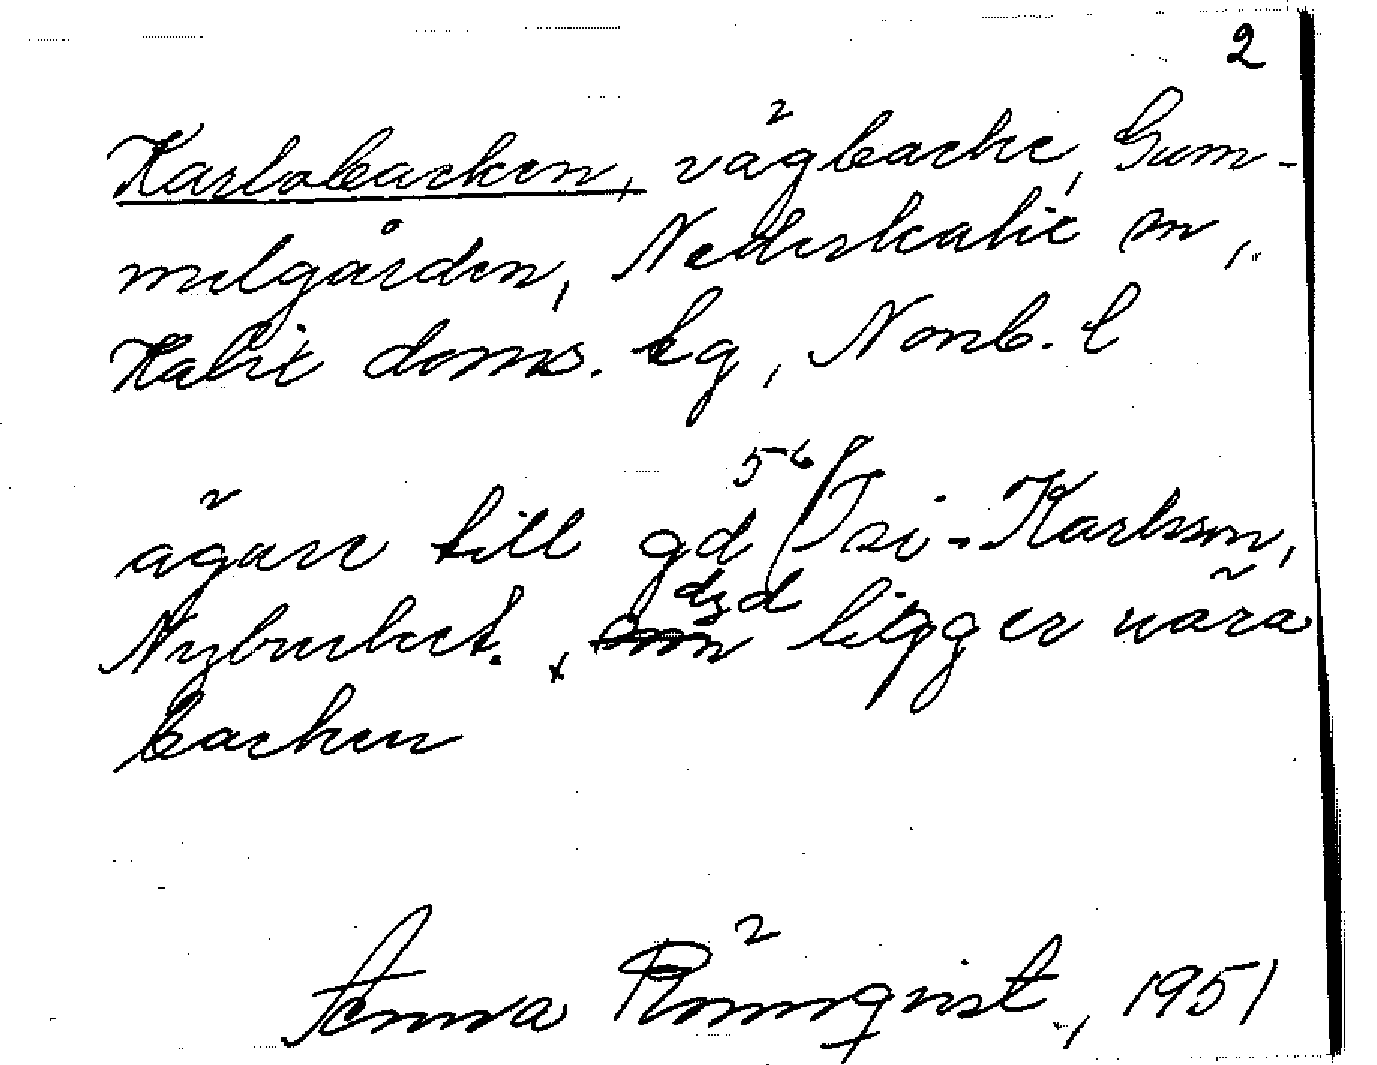 2
Karlsbacken, vägbacke, Gam-
melgården, Nederkalix sn,
Kalix doms. lg, Norrb. l
ägare till gd 56/ Isi-Karlsson,
Nybruket., dzd ligger nära
backen
Anna Römqvist, 1951